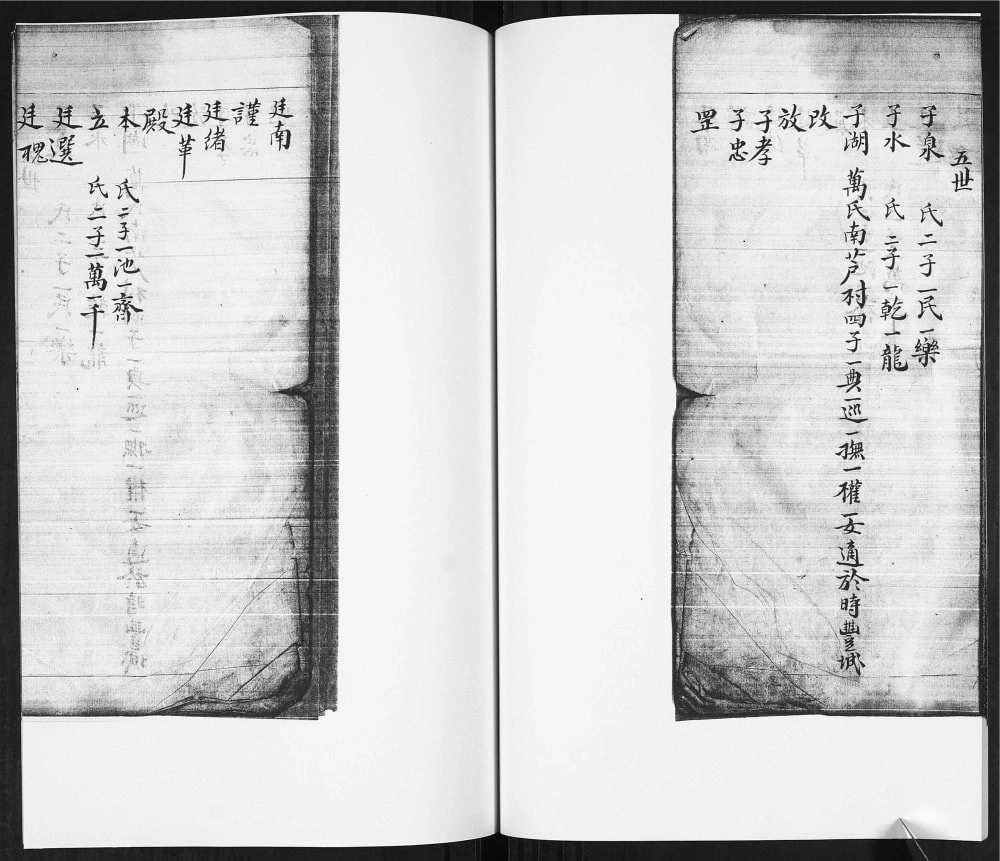 五世
子泉 氏二子一民一樂
子水 氏二子一乾一龍
子湖 萬氏南芦村四子一典一巡一撫一權一女適於時豐城
改
放
子孝
子忠
罡
廷南
謹
廷緒
廷革
殿
本 氏二子一池一齊
立 氏二子一萬一千
廷選
廷槐